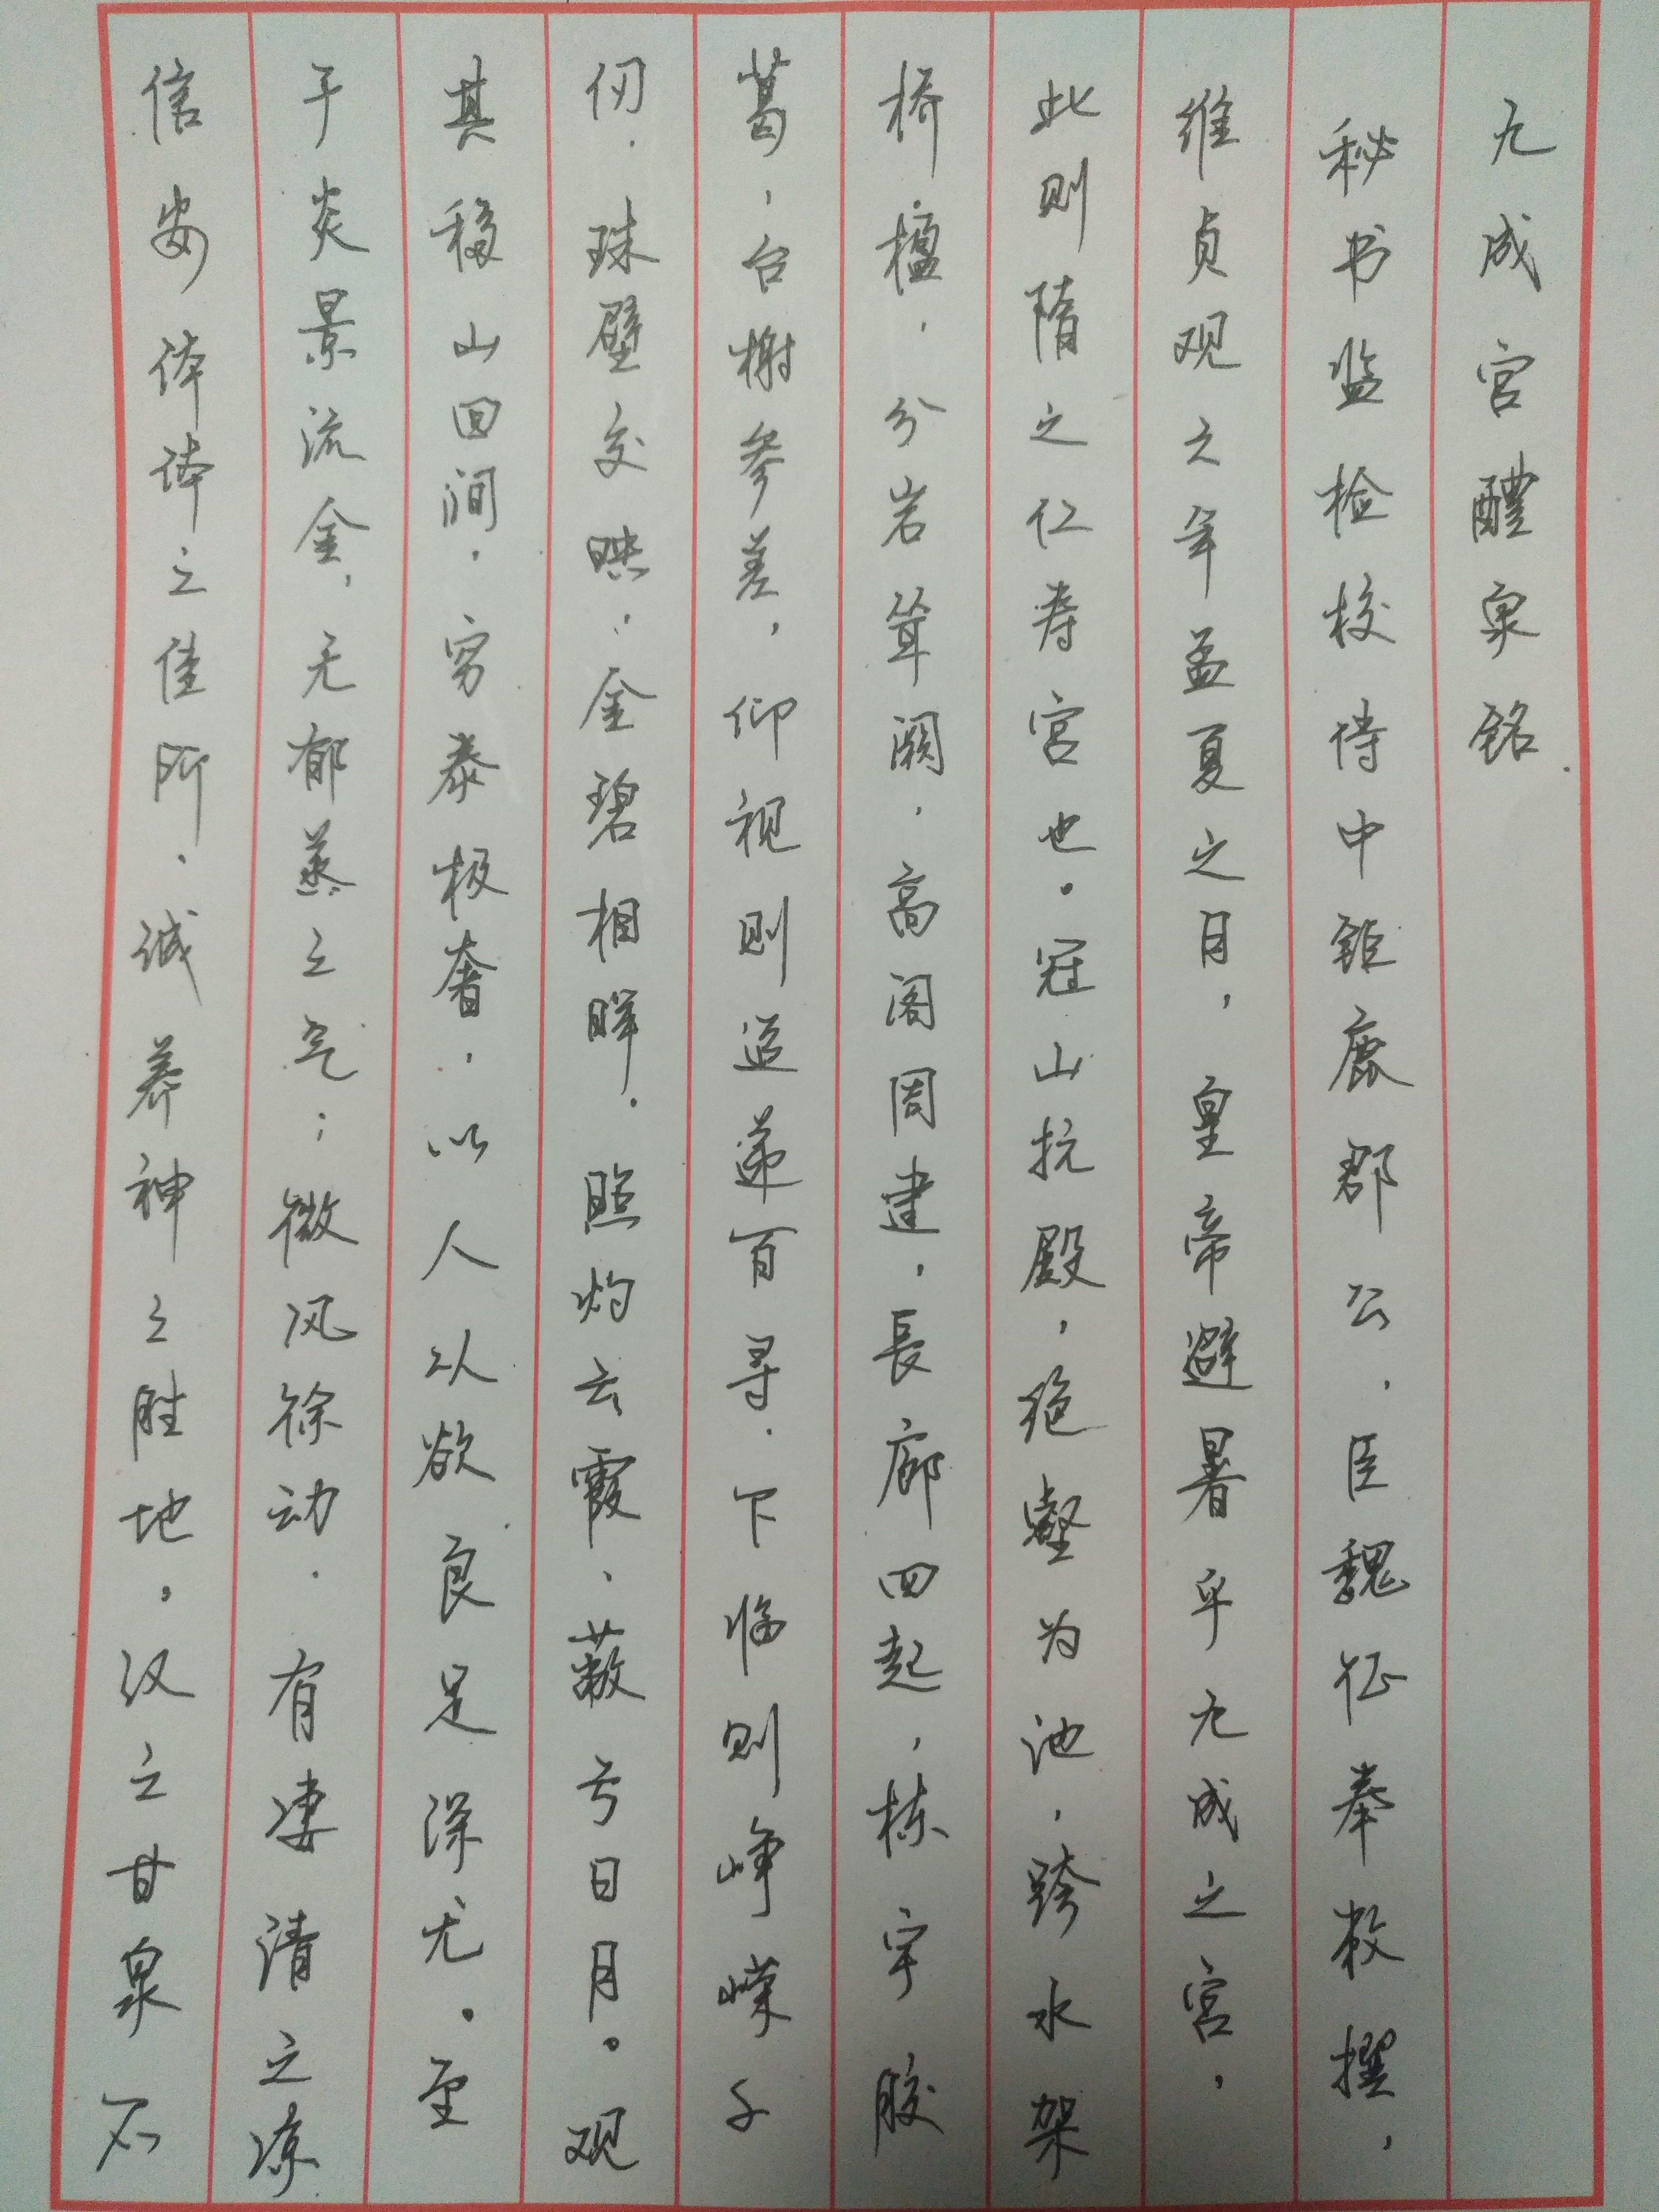 九成宫醴泉铭
秘书监检校侍中钜鹿郡公,臣魏征奉敕撰,
维贞观之年孟夏之月,皇帝避暑乎九成之宫,
此则隋之仁寿宫也。冠山抗殿,绝壑为池,跨水架
桥楹,分岩耸阙,高阁周建,長廊四起,栋宇胶
葛,台榭参差,仰视则迢递百寻.下临则峥嵘千
仞.珠壁交映,金碧相晖.照灼云霞、蔽亏日月。观
其移山回涧.穷泰极奢.以人从欲良足深尤。至
于炎景流金,无郁蒸之气;微风徐动.有凄清之凉
信安体体之佳所.诚养神之胜地,汉之甘泉不